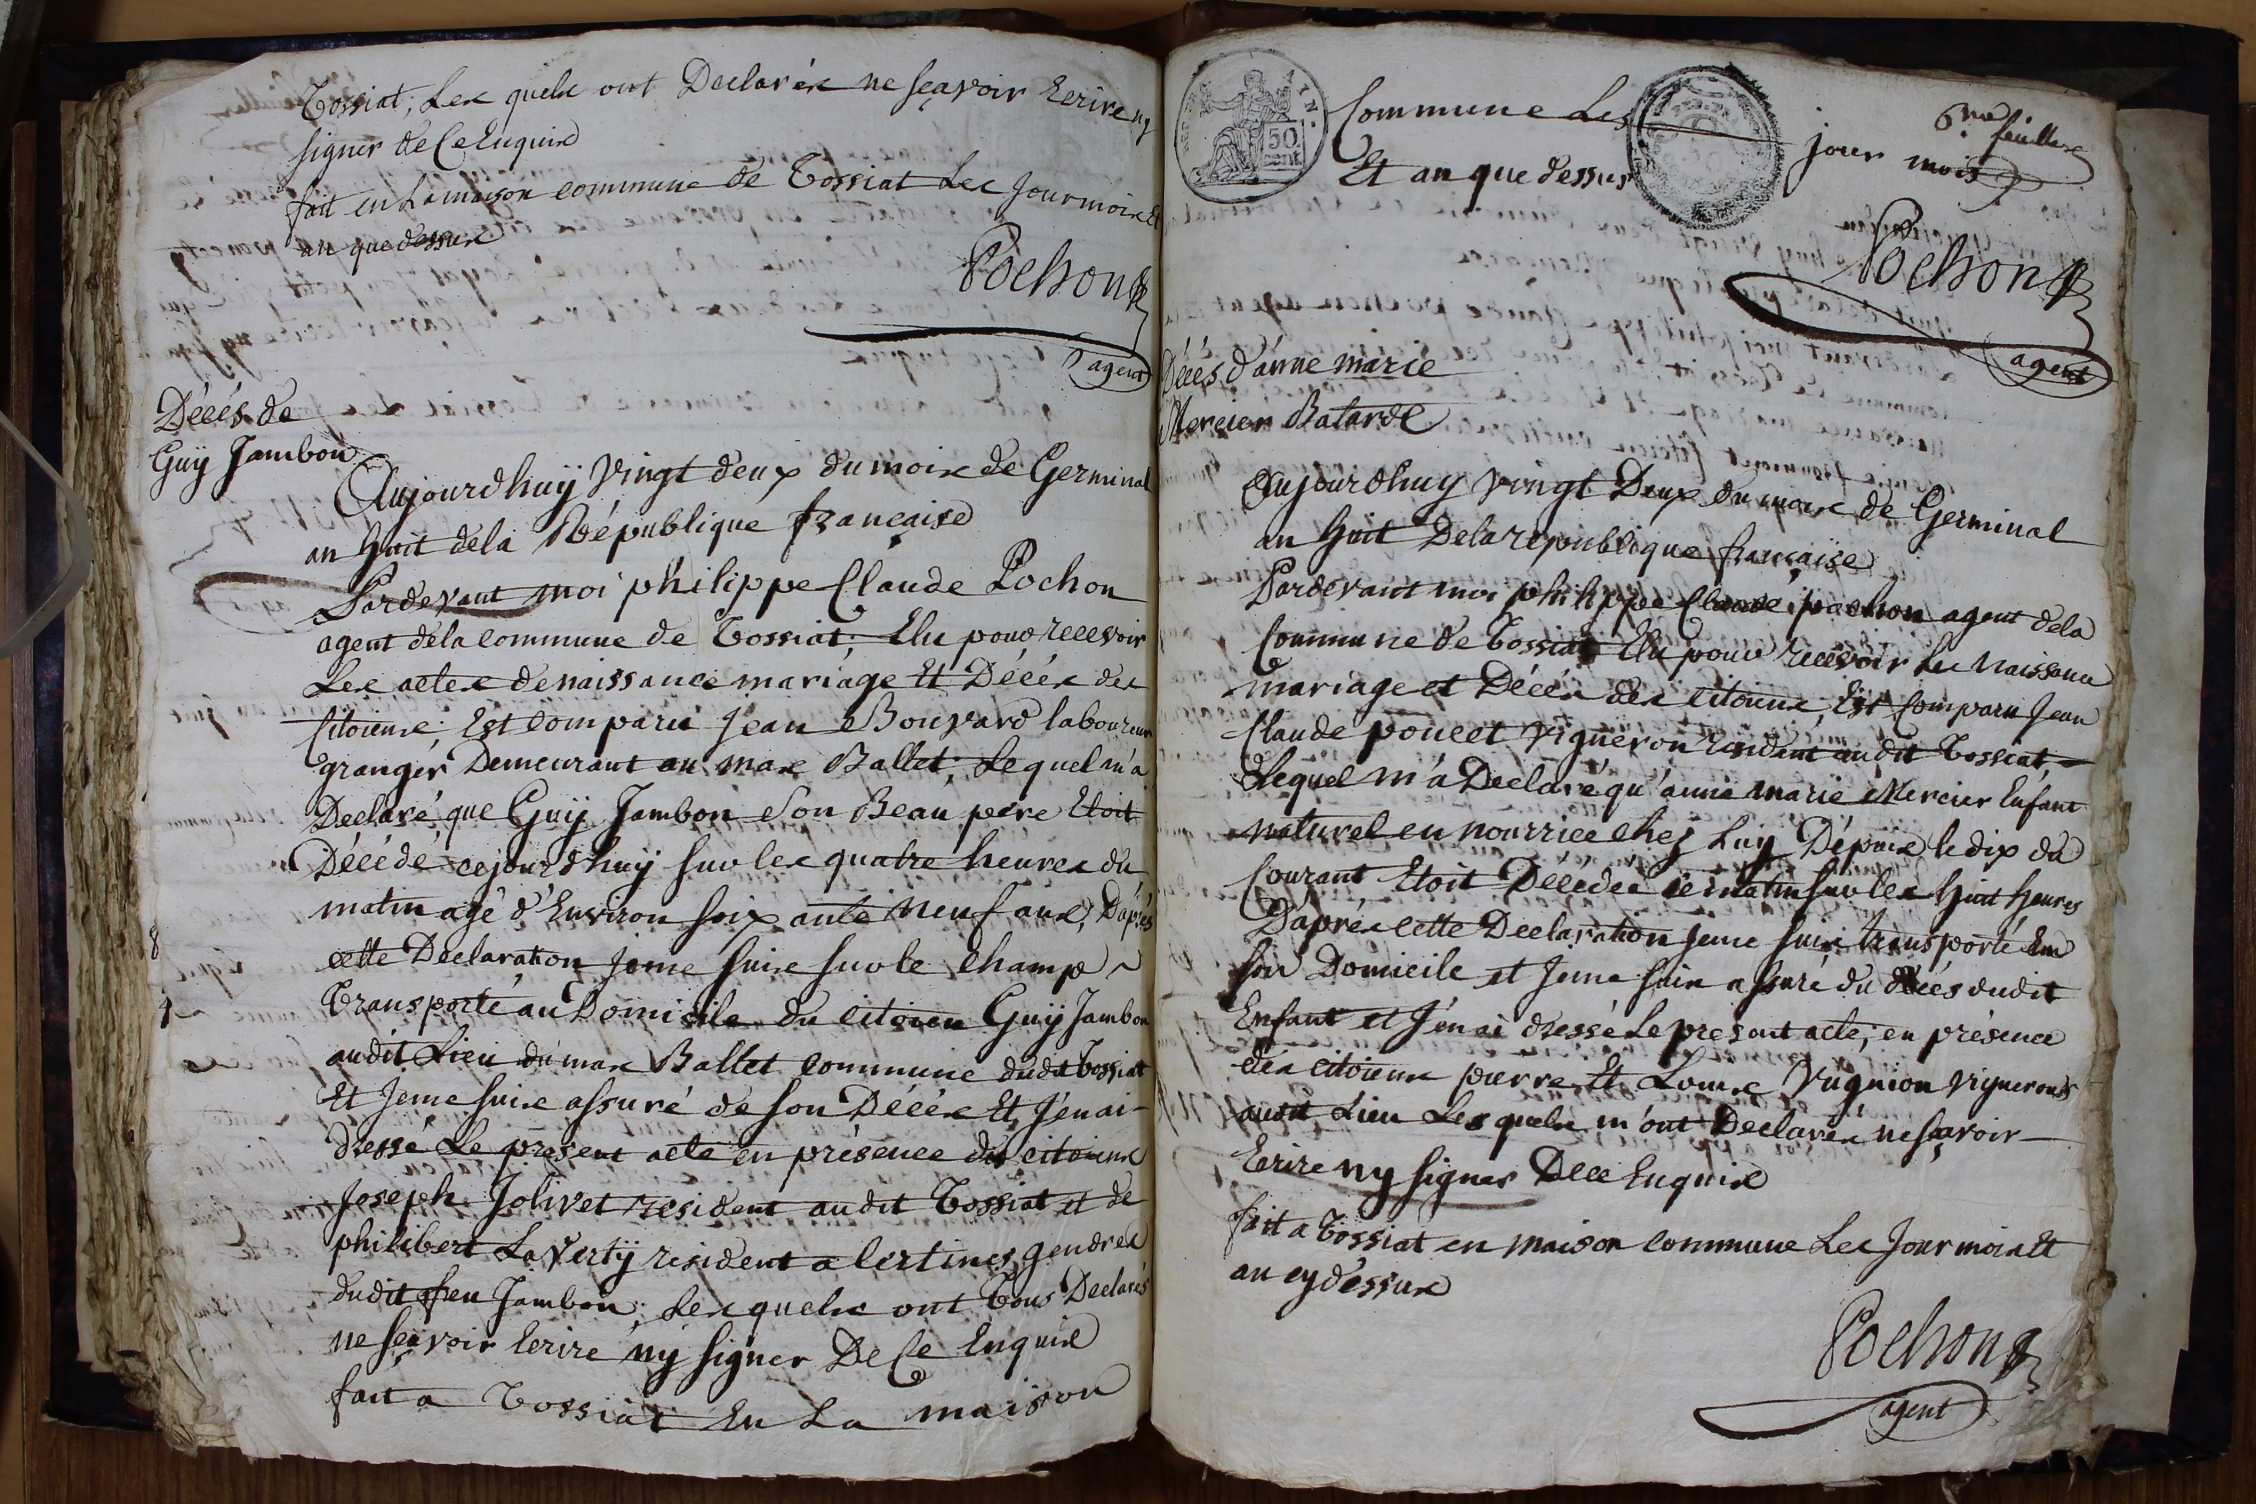 Tossiat, Lesquels ont Declarés ne sçavoir Ecrire ny
signer de Ce Enquis
fait en La maison commune de Tossiat Les Jour mois Et
an que dessus
Pochon
agent
Décés de
Guÿ Jambon
Aujourdhuÿ Vingt deux du mois de Germinal
an huit dela République française
Pardevant moi philippe Claude Pochon
agent dela commune de Tossiat, Elu pour recevoir
Les actes de naissance mariage Et Décés des
Citoiens, Est comparu Jean Bouvard laboureur
granger Demeurant au mas Ballet, Lequel m'a
Declaré que Guÿ Jambon Son Beau pere Etoit
Décédé cejourdhuÿ sur les quatre heures du
matin agé d'Environ soixante neuf ans, D'aprés
cette Declaration Jeme suis sur le champ
Transporté au Domicile du citoien Guÿ Jambon
audit Lieu du mas Ballet commune dudit Tossiat
Et Jeme suis assuré de son Décés Et J'en ai
dressé Le present acte en présence des citoiens
Joseph Jolivet resident audit Tossiat et de
philibert Lavertÿ resident a Certines, gendres
dudit feu Jambon, Lesquels ont Tous Declarés
ne sçavoir Ecrire nÿ signer De Ce Enquis
fait a Tossiat En La maison
50
cent.
Commune Les jour mois
6me feuillet
Et an que dessus
Pochon
agent
Décés d'anne marie
Mercier Batarde
Aujourdhuy vingt Deux du mois de Germinal
an huit Dela république française
Pardevant moi philippe Claude pochon agent dela
Commune de Tossiat Elu pour recevoir Les naissance
mariage et Décés des citoiens, Est Comparu Jean
Claude poncet vigneron resident audit Tossiat
Lequel m'a Declaré qu'anne marie Mercier Enfant
naturel en nourrice chez Luy Dépuis le dix du
Courant Etoit Décédée ce matin sur les huit heures
D'aprés cette Declaration Jeme suis transporté En
son Domicile et Jeme suis assuré du décés dudit
Enfant et J'en ai dressé Le present acte, en présence
des citoiens pierre Et Louis Vugnion vignerons
audit Lieu Lesquels m'ont Declarés ne sçavoir
Ecrire ny signer De ce Enquis
fait a Tossiat en maison commune Les Jour mois Et
an cydéssus
Pochon
agent